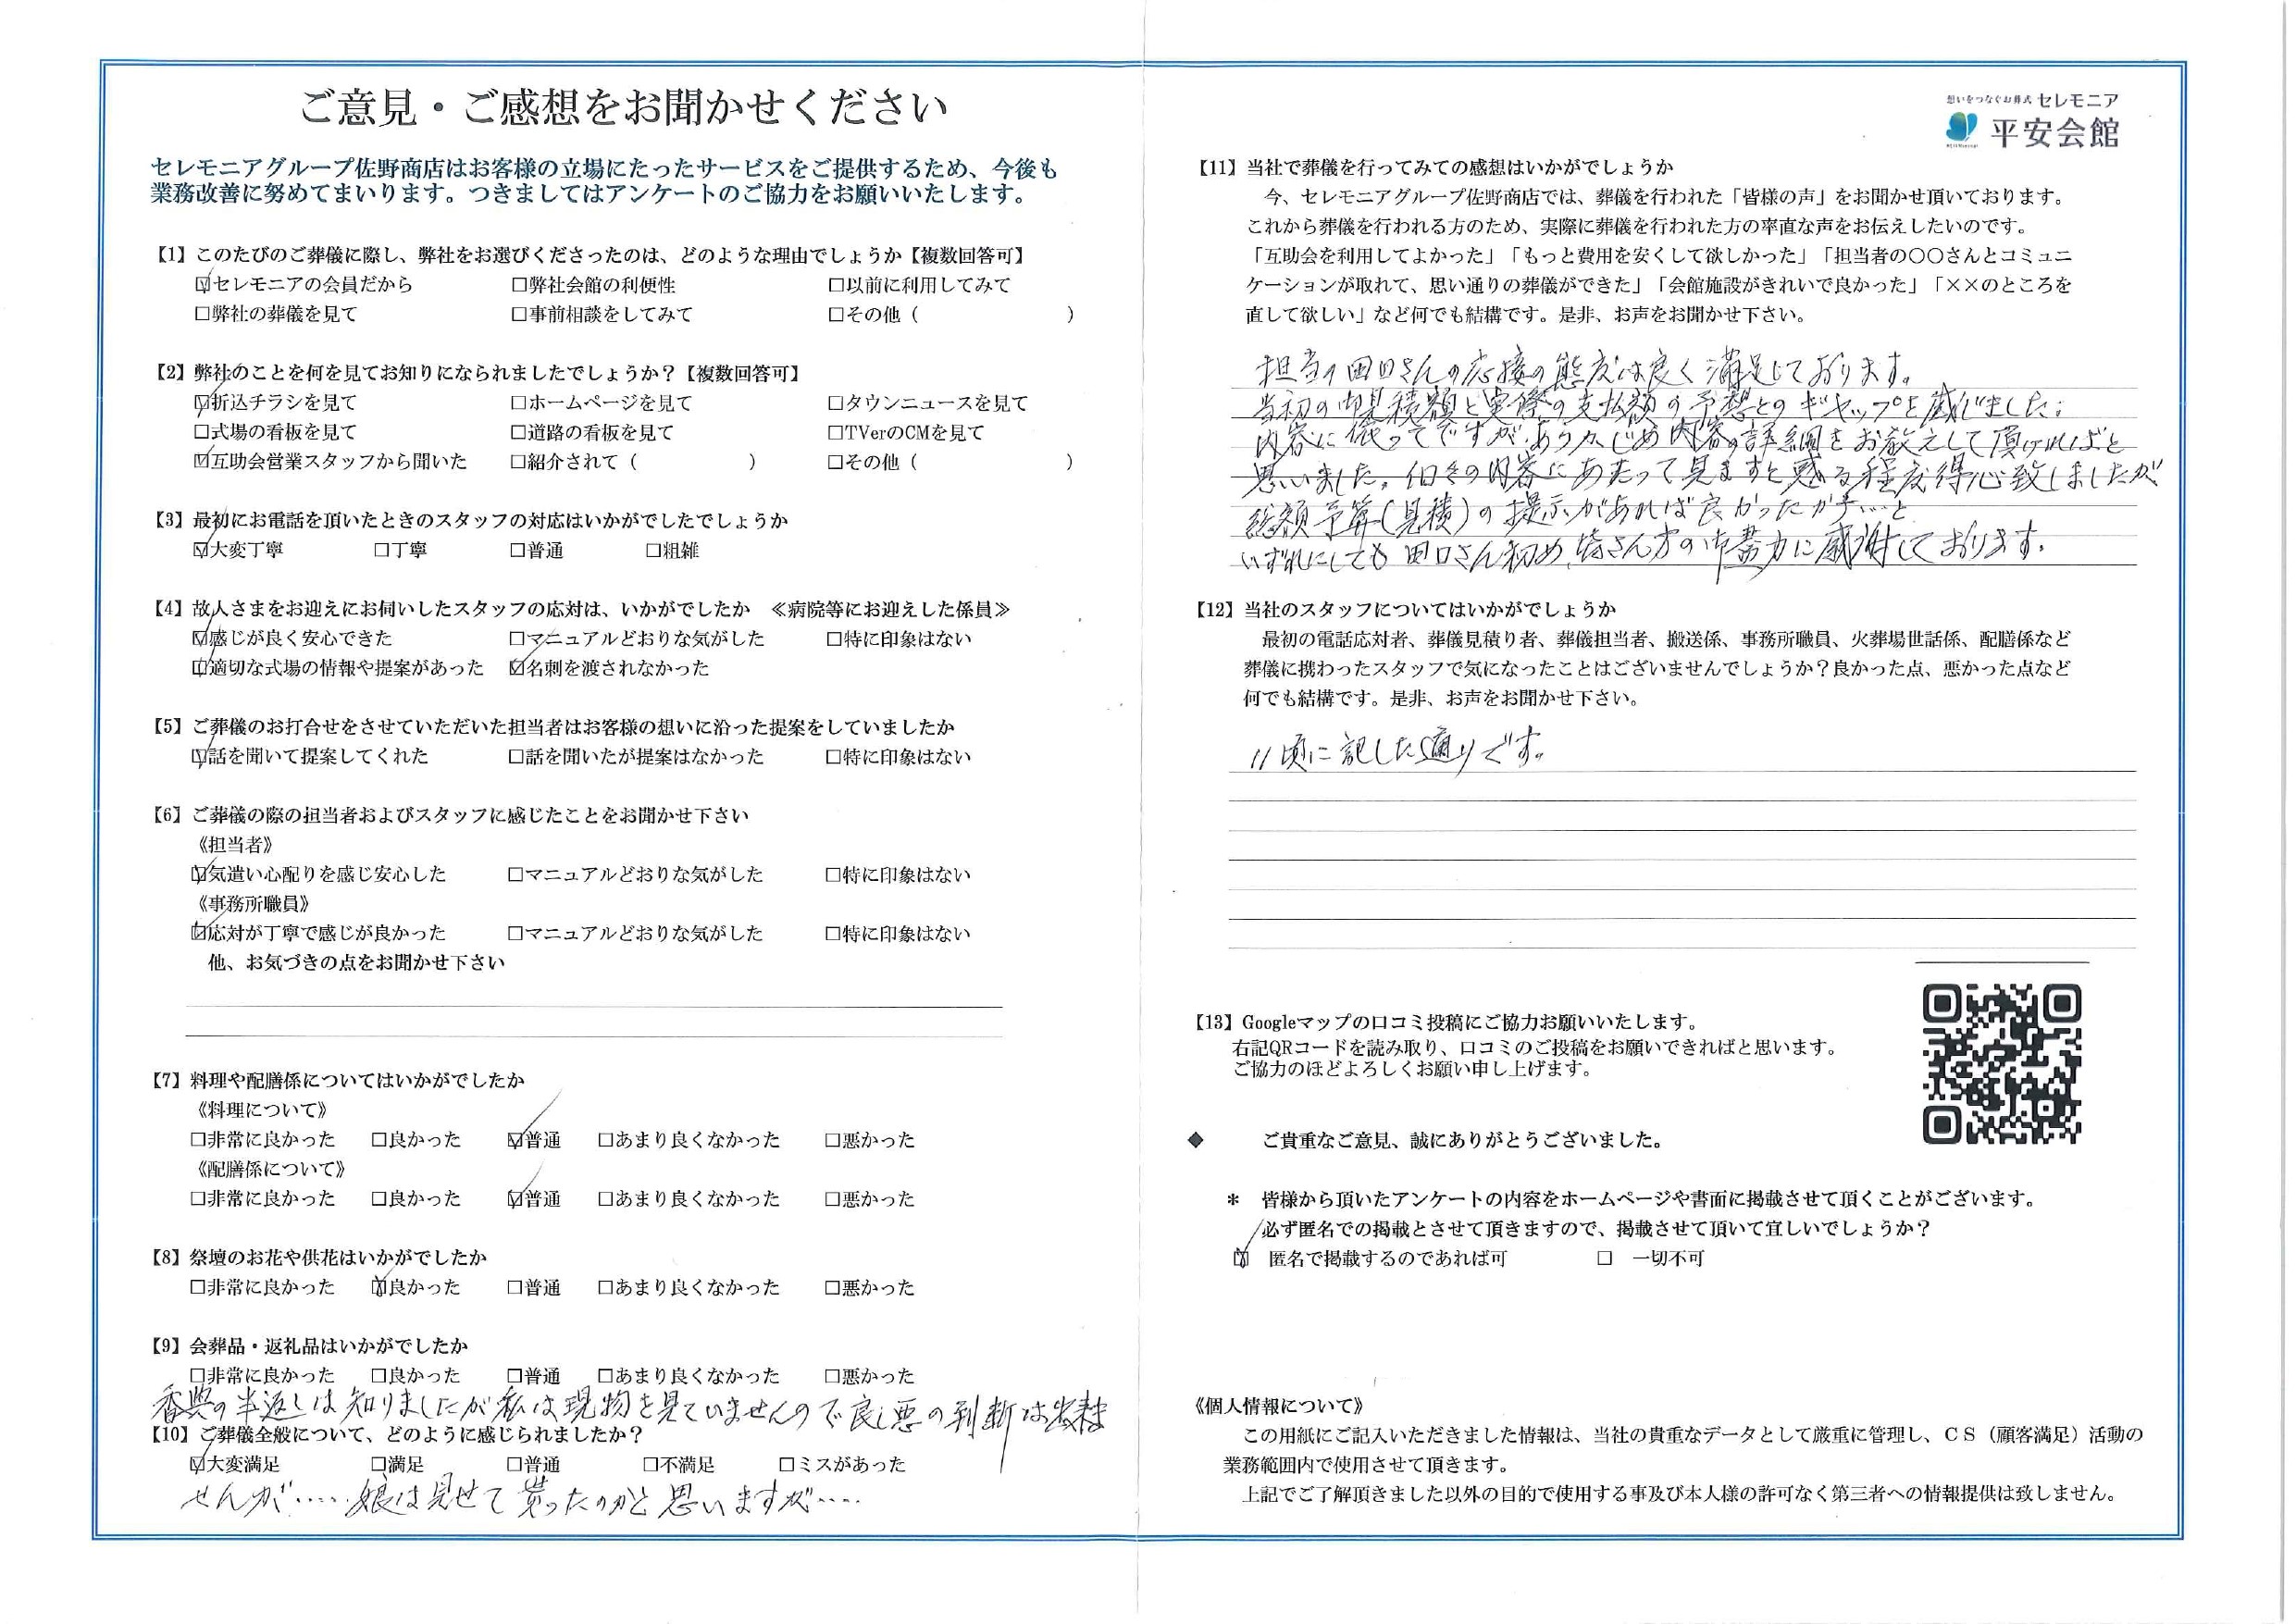 ご意見・ご感想をお聞かせください
セレモニアグループ佐野商店はお客様の立場にたったサービスをご提供するため、今後も
業務改善に努めてまいります。つきましてはアンケートのご協力をお願いいたします。
【1】このたびのご葬儀に際し、弊社をお選びくださったのは、どのような理由でしょうか【複数回答可】
☑セレモニアの会員だから □弊社会館の利便性 □以前に利用してみて
□弊社の葬儀を見て □事前相談をしてみて □その他（ ）
【2】弊社のことを何を見てお知りになられましたでしょうか？【複数回答可】
☑折込チラシを見て □ホームページを見て □タウンニュースを見て
□式場の看板を見て □道路の看板を見て □TVerのCMを見て
☑互助会営業スタッフから聞いた □紹介されて（ ） □その他（ ）
【3】最初にお電話を頂いたときのスタッフの対応はいかがでしたでしょうか
☑大変丁寧 □丁寧 □普通 □粗雑
【4】故人さまをお迎えにお伺いしたスタッフの応対は、いかがでしたか ≪病院等にお迎えした係員≫
☑感じが良く安心できた □マニュアルどおりな気がした □特に印象はない
☑適切な式場の情報や提案があった ☑名刺を渡されなかった
【5】ご葬儀のお打合せをさせていただいた担当者はお客様の想いに沿った提案をしていましたか
☑話を聞いて提案してくれた □話を聞いたが提案はなかった □特に印象はない
【6】ご葬儀の際の担当者およびスタッフに感じたことをお聞かせ下さい
《担当者》
☑気遣い心配りを感じ安心した □マニュアルどおりな気がした □特に印象はない
《事務所職員》
☑応対が丁寧で感じが良かった □マニュアルどおりな気がした □特に印象はない
他、お気づきの点をお聞かせ下さい
【7】料理や配膳係についてはいかがでしたか
《料理について》
□非常に良かった □良かった ☑普通 □あまり良くなかった □悪かった
《配膳係について》
□非常に良かった □良かった ☑普通 □あまり良くなかった □悪かった
【8】祭壇のお花や供花はいかがでしたか
□非常に良かった ☑良かった □普通 □あまり良くなかった □悪かった
【9】会葬品・返礼品はいかがでしたか
□非常に良かった □良かった □普通 □あまり良くなかった □悪かった
香典の半返しは知りましたが私は現物を見ていませんので良し悪の判断は出来ま
【10】ご葬儀全般について、どのように感じられましたか？
☑大変満足 □満足 □普通 □不満足 □ミスがあった
せんが……娘は見せて貰ったのかと思いますが……
想いをつなぐお葬式 セレモニア
平安会館
【11】当社で葬儀を行ってみての感想はいかがでしょうか
今、セレモニアグループ佐野商店では、葬儀を行われた「皆様の声」をお聞かせ頂いております。
これから葬儀を行われる方のため、実際に葬儀を行われた方の率直な声をお伝えしたいのです。
「互助会を利用してよかった」「もっと費用を安くして欲しかった」「担当者の〇〇さんとコミュニ
ケーションが取れて、思い通りの葬儀ができた」「会館施設がきれいで良かった」「××のところを
直して欲しい」など何でも結構です。是非、お声をお聞かせ下さい。
担当の田口さんの応接の態度は良く満足しております。
当初の御見積額と実際の支払額の予想とのギャップを感じました。
内容に依ってですがあらかじめ内容の詳細をお教えして頂ければと
思いました。個々の内容にあたって見ますと或る程度得心致しましたが
総額予算(見積)の提示があれば良かったか予…と
いずれにしても田口さん初め、皆さん方の御尽力に感謝しております。
【12】当社のスタッフについてはいかがでしょうか
最初の電話応対者、葬儀見積り者、葬儀担当者、搬送係、事務所職員、火葬場世話係、配膳係など
葬儀に携わったスタッフで気になったことはございませんでしょうか？良かった点、悪かった点など
何でも結構です。是非、お声をお聞かせ下さい。
11項に記した通りです。
【13】Googleマップの口コミ投稿にご協力お願いいたします。
右記QRコードを読み取り、口コミのご投稿をお願いできればと思います。
ご協力のほどよろしくお願い申し上げます。
◆ ご貴重なご意見、誠にありがとうございました。
＊ 皆様から頂いたアンケートの内容をホームページや書面に掲載させて頂くことがございます。
必ず匿名での掲載とさせて頂きますので、掲載させて頂いて宜しいでしょうか？
☑ 匿名で掲載するのであれば可 □ 一切不可
《個人情報について》
この用紙にご記入いただきました情報は、当社の貴重なデータとして厳重に管理し、ＣＳ（顧客満足）活動の
業務範囲内で使用させて頂きます。
上記でご了解頂きました以外の目的で使用する事及び本人様の許可なく第三者への情報提供は致しません。